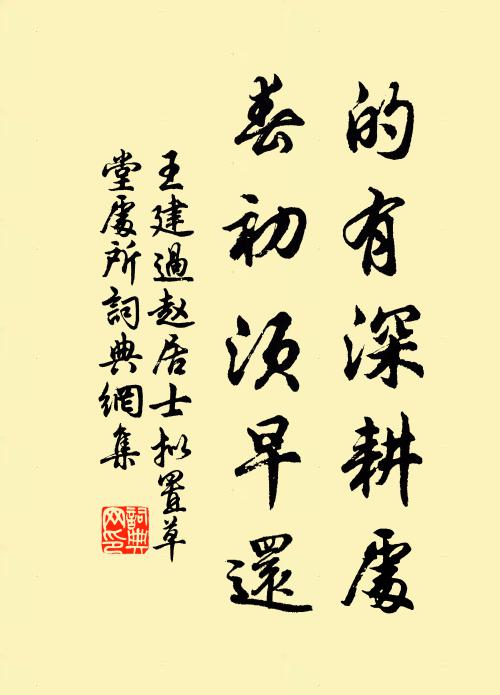 的有深耕處
春初須早還
王建過赵居士拟置草
堂處所詞典網集
詞典網印